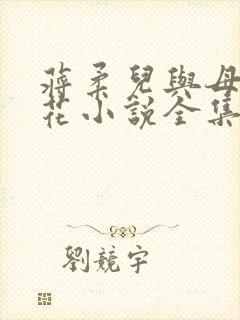 蔣柔兒與母
花小說全集
劉競宇